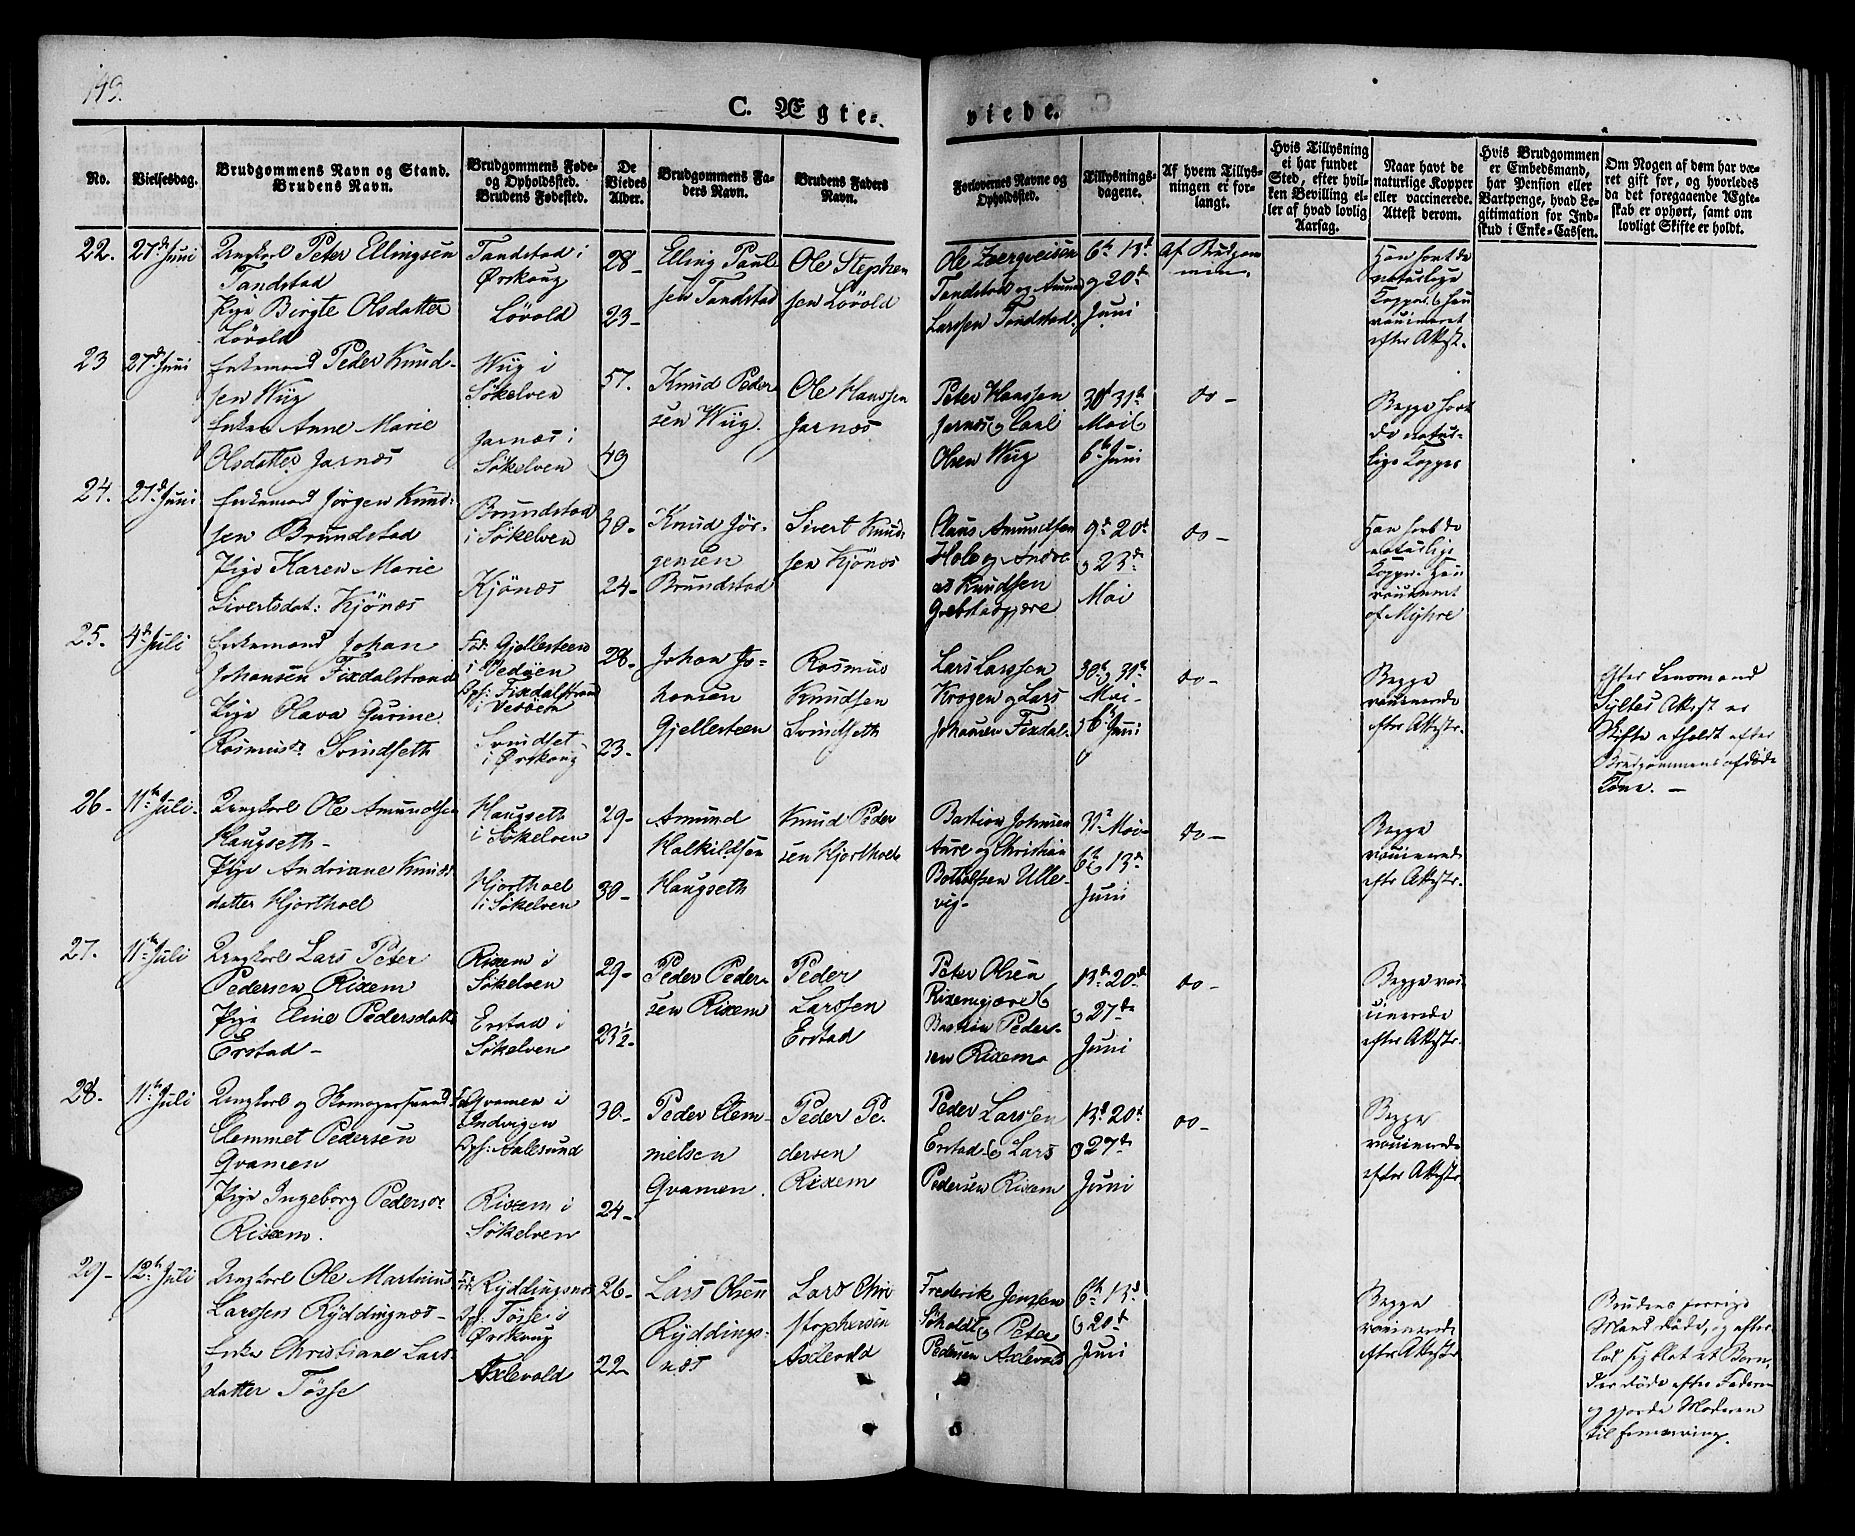 149.
C. Ægte-
viede.
No.
Vielsesdag.
Brudgommens Navn og Stand.
Brudens Navn.
Brudgommens Føde-
og Opholdssted.
Brudens Fødested.
De
Viedes
Alder.
Brudgommens Fa-
ders Navn.
Brudens Faders
Navn.
Forlovernes Navne og
Opholdssted.
Tillysnings-
dagene.
Af hvem Tillys-
ningen er for-
langt.
Hvis Tillysning
ei har fundet
Sted, efter hvil-
ken Bevilling el-
ler af hvad lovlig
Aarsag.
Naar havt de
naturlige Kopper
eller vaccinerede.
Attest derom.
Hvis Brudgommen
er Embedsmand,
har Pension eller
Vartpenge, hvad Le-
gitimation for Ind-
skud i Enke-Cassen.
Om Nogen af dem har væ-
ret gift før, og hvorledes
da det foregaaende Ægte-
skab er ophørt, samt om
lovligt Skifte er holdt.
22.
27de Juni
Ungkarl Peter Ellingsen
Tandstad
Pige Birgte Olsdatter
Løvold
Tandstad i
Ørskoug
Løvold
28-
23-
Elling Paul-
sen Tandstad
Ole Stephen
sen Løvold
Ole
Tandstad og Amund
Larssen Tandstad.
6te 13de
og 20de
Juni
Af Brudgom
men.
Han havt de
naturlige
Kopper, hun
vaccineret
efter Attest.
23
27de Juni
Enkemand Peder Knud-
sen Wiig
Enke Anne Marie
Olsdatter Jarnæs
Wiig i
Søkelven
Jarnæs i
Søkelven
57.
49
Knud Peder
sen Wiig.
Ole Hanssen
Jarnæs
Peter Hanssen
Jarnæs
Olsen Wiig
30te 31te
Mai &
6te Juni
do -
Begge havt
de natur-
lige Kopper
24.
27de Juni
Enkemand Jørgen Knud-
sen Brundstad
Pige Karen Marie
Sivertsdat: Kjønæs
Brundstad
i Søkelven
Kjønæs
30-
24-
Knud Jør-
gensen
Brundstad
Sivert Knud
sen Kjönæs
Claus Amundsen
Hole og Andre-
as Knudsen
9de 20de
& 23de
Mai
do -
Han havt de
naturlige
Kopper. Hun
vaccineret
af Myhre
25.
4de Juli
Enkemand Johan
Johansen Fixdalstrand
Pige Olava Gurine
Rasmusdr Svindseth
Fød: Gjellesteen
i Vedøen
Oph: Fixdalstrand
i Vedøen
Svindset
i Ørskoug
28-
23-
Johan Jo-
hansen
Gjellesteen
Rasmus
Knudsen
Svindseth
Lars Larssen
Krogen og Lars
Johansen Fixdal-
30te 31te
Mai
& 6te Juni
do -
Begge
vaccinerede
efter Attester.
Efter Lensmand
Syltes Attest er
Skifte afholdt efter
Brudgommens afdøde
Kone. -
26-
11te Juli.
Ungkarl Ole Amundsen
Haugseth-
Pige Andriane Knuds
datter Hjorthoel
Haugseth
i Søkelven
Hjorthoel
i Søkelven
29-
30-
Amund
Halkildsen
Haugseth
Knud Peder
sen Hjorthoel
Bastian Johnsen
Aure og Christian
Bottolfsen Ulle-
vig-
31te Mai-
6te & 13de
Juni
do -
Begge
vaccinerede
efter Attester.
27.
11te Juli
Ungkarl Lars Peter
Pedersen Rixem
Pige Eline Pedersdatter
Erstad-
Rixem i
Søkelven
Erstad i
Søkelven
29-
23½-
Peder Peder-
sen Rixem
Peder
Larssen
Erstad
Peter Olsen
Rixemgjære &
Bastian Peder-
sen Rixem
13de 20de
& 27de
Juni
do -
Begge vac-
cinerede
efter Attester.
28.
11te Juli
Ungkarl og Skomagersvend
Clemmet Pedersen
Qvamen
Pige Ingeborg Pedersdr
Rixem.
Fød: Qvamen i
Indvigen
Oph: Aalesund
Rixem i
Søkelven
30-
24-
Peder Clem-
metsen
Qvamen.
Peder Pe-
dersen
Rixem
Peder Larssen
Erstad & Lars
Pedersen Rixem
13de 20de
& 27de
Juni
do -
Begge
vaccinerede
efter Attester
29-
12te Juli
Ungkarl Ole Martinus
Larssen Ryddingnæs-
Enke Christiane Lars-
datter Tøsse
Fød: Ryddingsnæs
Oph: Tøsse i
Ørskoug
Axlevold
26-
22-
Lars Olsen
Ryddings-
næs
Lars Chri
stophersen
Axlevold
Frederik Jenssen
Søholdt & Peter
Pedersen Axlevold
6te 13de
& 20de
Juni
Begge
vaccinerede
efter Attester
Brudens forrige
Mand døde, og efter-
lod sig blot et Barn,
der døde efter Faderen
og gjorde Moderen
til Enearving.